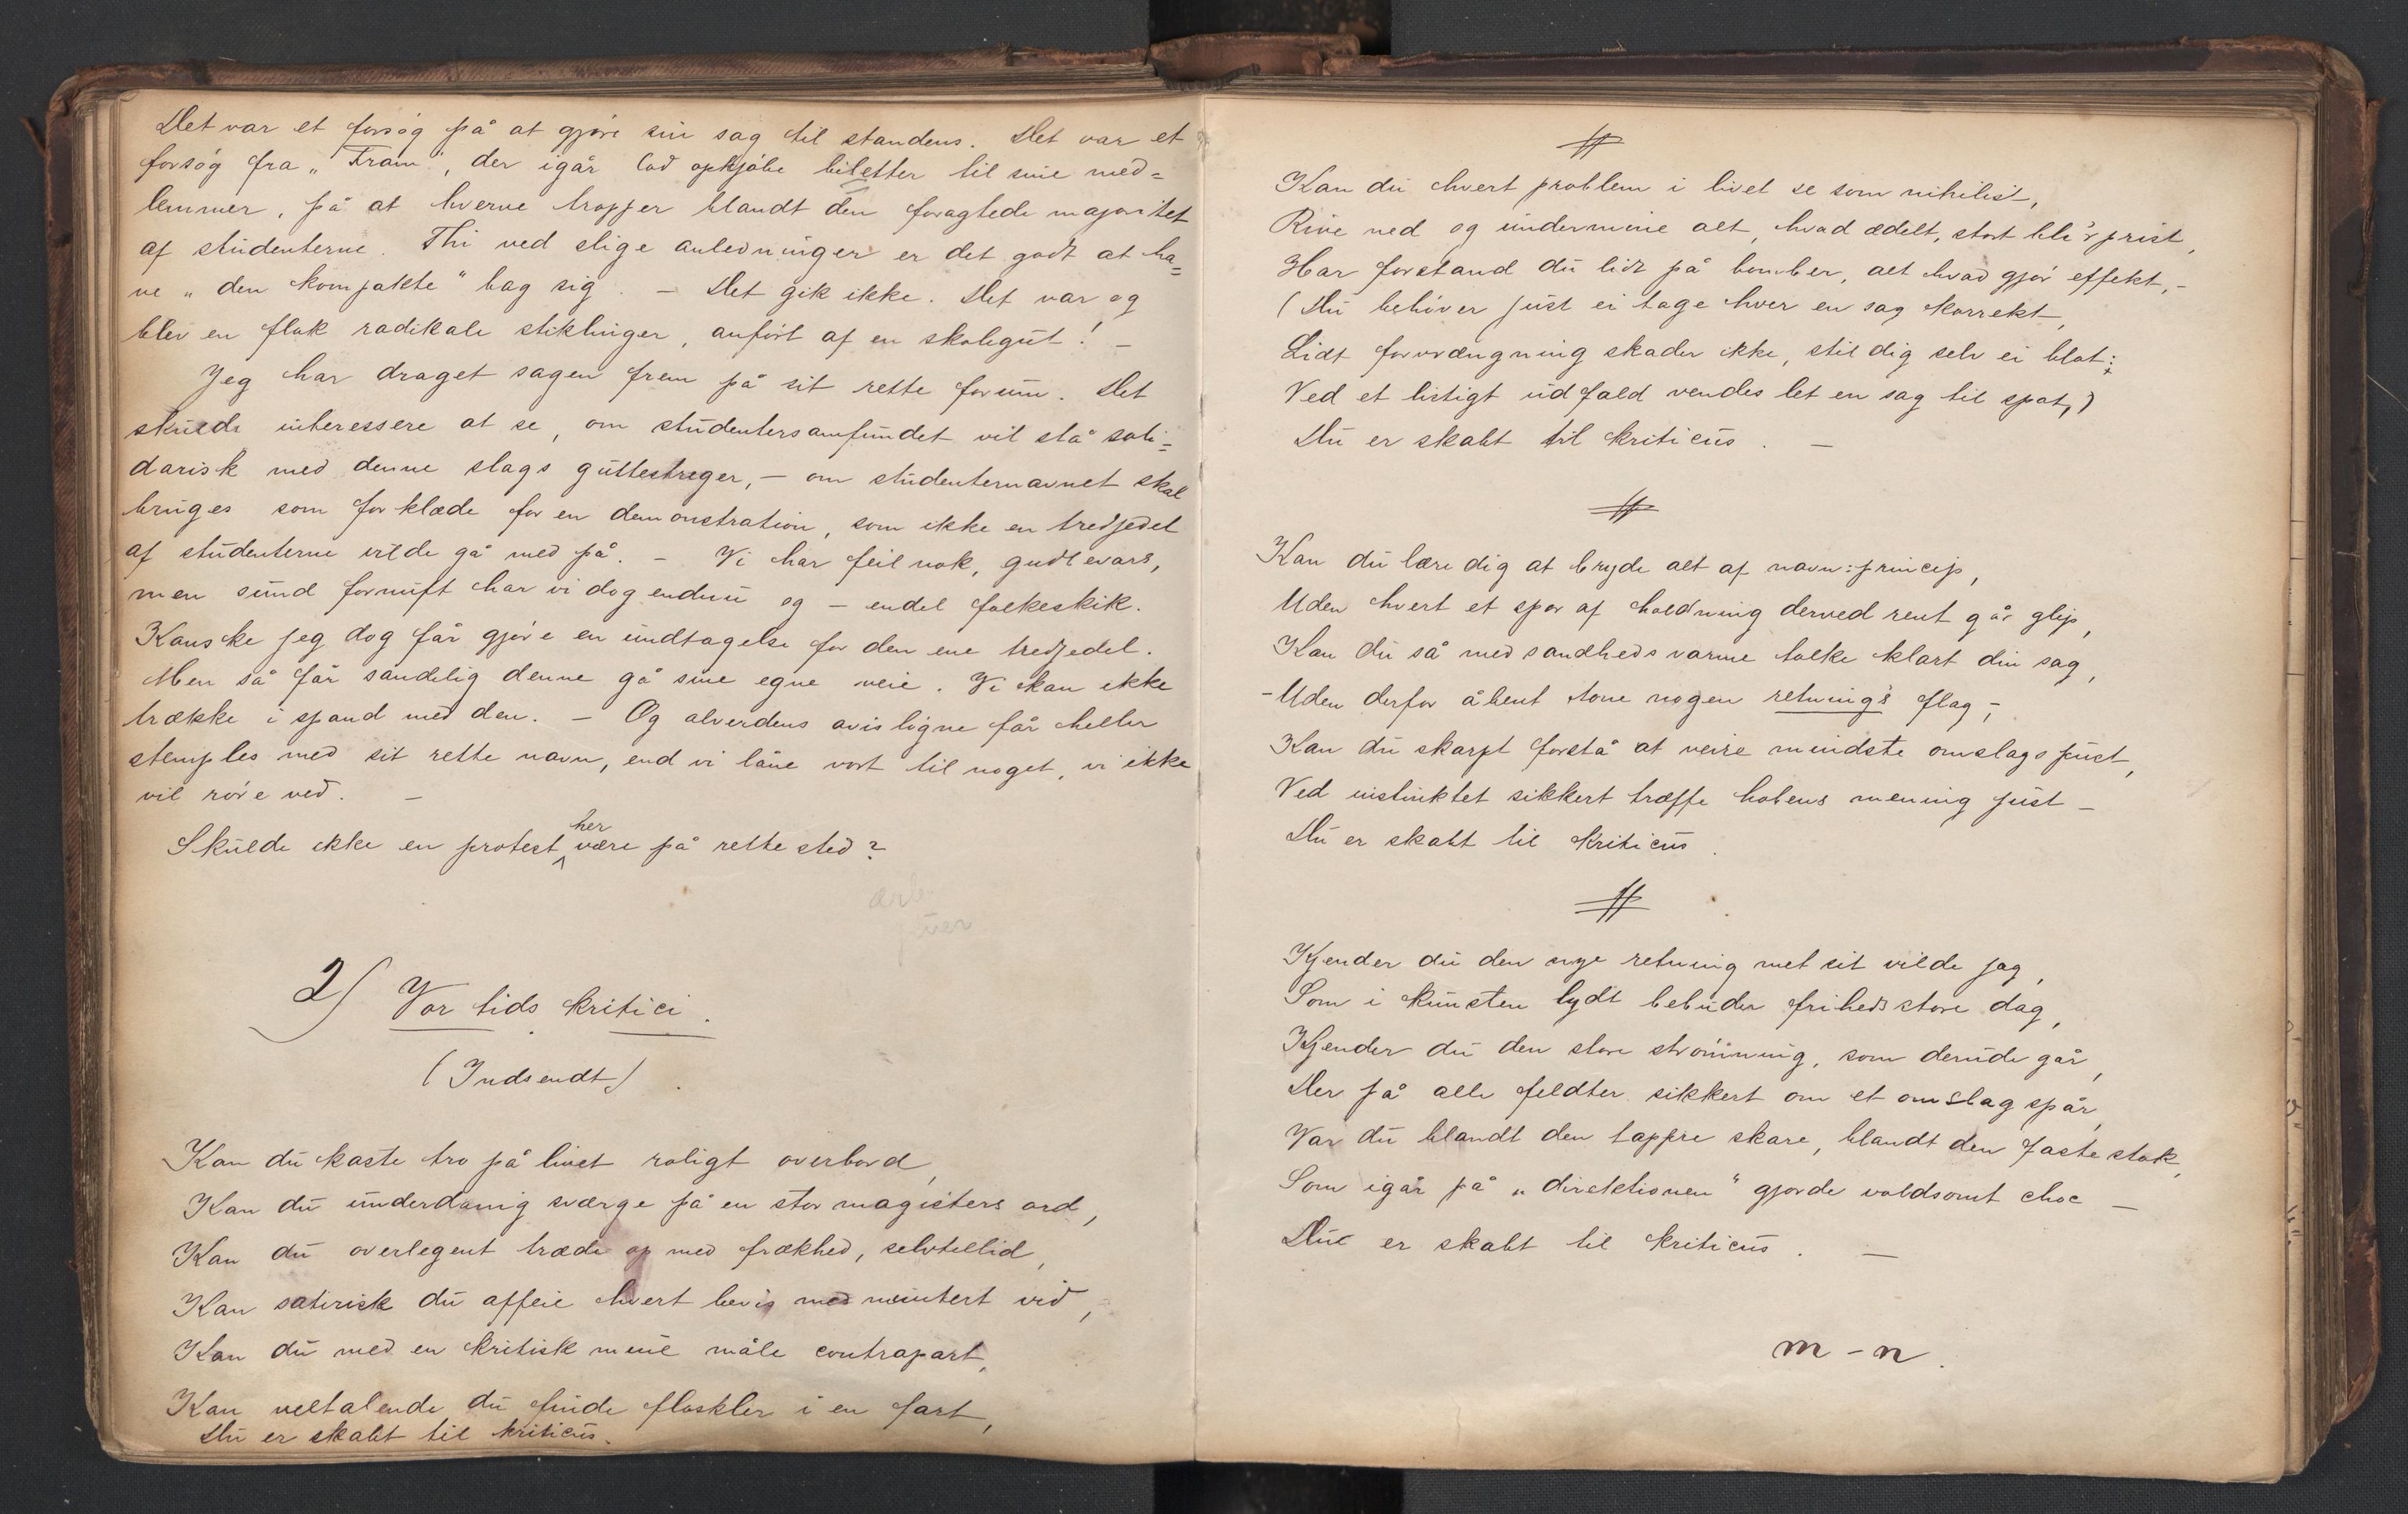 Det var et forsøg på at gjøre sin sag til standens. Det var et
forsøg fra „Fram“, der igår lod opkjøbe biletter til sine med=
lemmer, på at hverve tropper blandt den foragtede majoritet
af studenterne. Thi ved slige anledninger er det godt at ha=
ve „den kompakte“ bag sig. – Det gik ikke. Det var og
blev en flok radikale stiklinger, anført af en skolegut! –
Jeg har draget sagen frem på sit rette forum. Det
skulde interessere at se, om studentersamfundet vil stå soli=
darisk med denne slags guttestreger, – om studenternavnet skal
bruges som forklæde for en demonstration, som ikke en tredjedel
af studenterne vilde gå med på. – Vi har feil nok, gudbevars,
men sund fornuft har vi dog endnu og – endel folkeskik.
Kanske jeg dog får gjøre en undtagelse for den ene tredjedel.
Men så får sandelig denne gå sine egne veie. Vi kan ikke
trække i spand med den. – Og alverdens avisløgne får heller
stemples med sit rette navn, end vi låne vort til noget, vi ikke
vil røre ved. –
Skulde ikke en protest her være på rette sted?
2) Vor tids kritici.
(Indsendt)
Kan du kaste tro på livet roligt overbord,
Kan du underdanig sværge på en stor magisters ord,
Kan du overlegent træde op med frækhed, selvtillid,
Kan satirisk du affeie hvert bevis med møntert vid,
Kan du med en kritisk mine måle contrapart,
Kan veltalende du finde floskler i en fart,
Du er skabt til kriticus.
Kan du hvert problem i livet se som nihilist,
Rive ned og underminere alt, hvad ædelt, stort bli'r prist,
Har forstand du lidt på bomber, alt hvad gjør effekt, –
(Du behøver just ei tage hver en sag korrekt,
Lidt forvrængning skader ikke, stil dig selv ei blot;
Ved et listigt udfald vendes let en sag til spot,)
Du er skabt til kriticus. –
Kan du lære dig at bryde alt af navn: princip,
Uden hvert et spor af holdning derved rent går glip,
Kan du så med sandheds varme tolke klart din sag,
– Uden derfor åbent tone nogen retnings flag, –
Kan du skarpt forstå at veire mindste omslags pust,
Ved instinktet sikkert træffe hobens mening just –
Du er skabt til kriticus.
Kjender du den nye retning met sit vilde jag,
Som i kunsten lydt bebuder friheds store dag,
Kjender du den store strømning, som derude går,
Der på alle feldter sikkert om et omslag spår,
Var du blandt den tappre skare, blandt den faste stok,
Som igår på „direktionen“ gjorde voldsomt choc –
Du er skabt til kriticus. –
m – n.